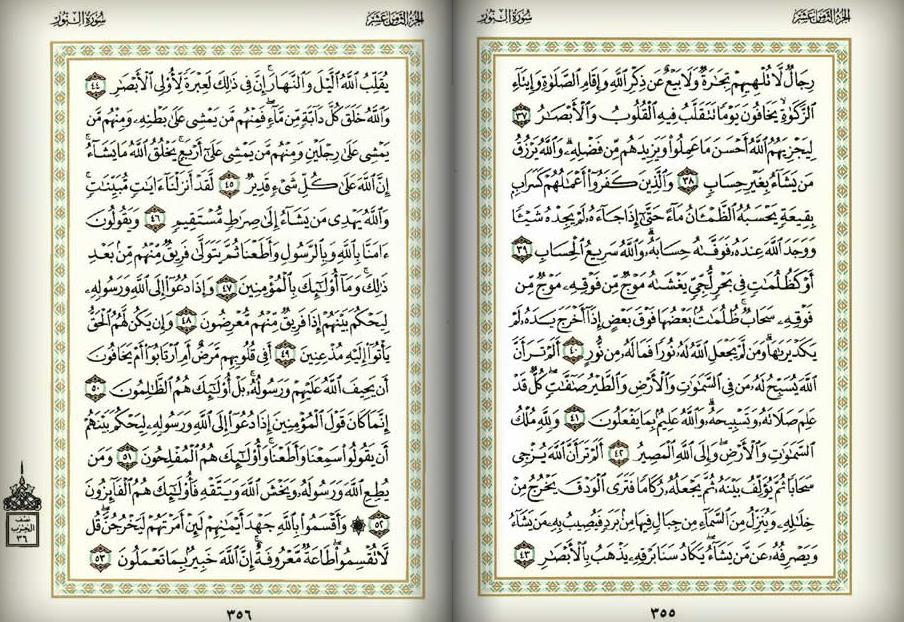 الجزء الثامن عشر
سورة النور
رِجَالٌ لَّا تُلْهِيهِمْ تِجَٰرَةٌ وَلَا بَيْعٌ عَن ذِكْرِ ٱللَّهِ وَإِقَامِ ٱلصَّلَوٰةِ وَإِيتَآءِ
ٱلزَّكَوٰةِ يَخَافُونَ يَوْمًا تَتَقَلَّبُ فِيهِ ٱلْقُلُوبُ وَٱلْأَبْصَٰرُ ٣٧
لِيَجْزِيَهُمُ ٱللَّهُ أَحْسَنَ مَا عَمِلُوا۟ وَيَزِيدَهُم مِّن فَضْلِهِۦ وَٱللَّهُ يَرْزُقُ
مَن يَشَآءُ بِغَيْرِ حِسَابٍ ٣٨ وَٱلَّذِينَ كَفَرُوٓا۟ أَعْمَٰلُهُمْ كَسَرَابٍۭ
بِقِيعَةٍ يَحْسَبُهُ ٱلظَّمْـَٔانُ مَآءً حَتَّىٰٓ إِذَا جَآءَهُۥ لَمْ يَجِدْهُ شَيْـًٔا
وَوَجَدَ ٱللَّهَ عِندَهُۥ فَوَفَّىٰهُ حِسَابَهُۥ وَٱللَّهُ سَرِيعُ ٱلْحِسَابِ ٣٩
أَوْ كَظُلُمَٰتٍ فِى بَحْرٍ لُّجِّىٍّ يَغْشَىٰهُ مَوْجٌ مِّن فَوْقِهِۦ مَوْجٌ مِّن
فَوْقِهِۦ سَحَابٌ ظُلُمَٰتٌۢ بَعْضُهَا فَوْقَ بَعْضٍ إِذَآ أَخْرَجَ يَدَهُۥ لَمْ
يَكَدْ يَرَىٰهَا وَمَن لَّمْ يَجْعَلِ ٱللَّهُ لَهُۥ نُورًا فَمَا لَهُۥ مِن نُّورٍ ٤٠ أَلَمْ تَرَ أَنَّ
ٱللَّهَ يُسَبِّحُ لَهُۥ مَن فِى ٱلسَّمَٰوَٰتِ وَٱلْأَرْضِ وَٱلطَّيْرُ صَٰٓفَّٰتٍ كُلٌّ قَدْ
عَلِمَ صَلَاتَهُۥ وَتَسْبِيحَهُۥ وَٱللَّهُ عَلِيمٌۢ بِمَا يَفْعَلُونَ ٤١ وَلِلَّهِ مُلْكُ
ٱلسَّمَٰوَٰتِ وَٱلْأَرْضِ وَإِلَى ٱللَّهِ ٱلْمَصِيرُ ٤٢ أَلَمْ تَرَ أَنَّ ٱللَّهَ يُزْجِى
سَحَابًا ثُمَّ يُؤَلِّفُ بَيْنَهُۥ ثُمَّ يَجْعَلُهُۥ رُكَامًا فَتَرَى ٱلْوَدْقَ يَخْرُجُ مِنْ
خِلَٰلِهِۦ وَيُنَزِّلُ مِنَ ٱلسَّمَآءِ مِن جِبَالٍ فِيهَا مِنۢ بَرَدٍ فَيُصِيبُ بِهِۦ مَن يَشَآءُ
وَيَصْرِفُهُۥ عَن مَّن يَشَآءُ يَكَادُ سَنَا بَرْقِهِۦ يَذْهَبُ بِٱلْأَبْصَٰرِ ٤٣
٣٥٥
الجزء الثامن عشر
سورة النور
يُقَلِّبُ ٱللَّهُ ٱلَّيْلَ وَٱلنَّهَارَ إِنَّ فِى ذَٰلِكَ لَعِبْرَةً لِّأُو۟لِى ٱلْأَبْصَٰرِ ٤٤
وَٱللَّهُ خَلَقَ كُلَّ دَآبَّةٍ مِّن مَّآءٍ فَمِنْهُم مَّن يَمْشِى عَلَىٰ بَطْنِهِۦ وَمِنْهُم مَّن
يَمْشِى عَلَىٰ رِجْلَيْنِ وَمِنْهُم مَّن يَمْشِى عَلَىٰٓ أَرْبَعٍ يَخْلُقُ ٱللَّهُ مَا يَشَآءُ
إِنَّ ٱللَّهَ عَلَىٰ كُلِّ شَىْءٍ قَدِيرٌ ٤٥ لَّقَدْ أَنزَلْنَآ ءَايَٰتٍ مُّبَيِّنَٰتٍ
وَٱللَّهُ يَهْدِى مَن يَشَآءُ إِلَىٰ صِرَٰطٍ مُّسْتَقِيمٍ ٤٦ وَيَقُولُونَ
ءَامَنَّا بِٱللَّهِ وَبِٱلرَّسُولِ وَأَطَعْنَا ثُمَّ يَتَوَلَّىٰ فَرِيقٌ مِّنْهُم مِّنۢ بَعْدِ
ذَٰلِكَ وَمَآ أُو۟لَٰٓئِكَ بِٱلْمُؤْمِنِينَ ٤٧ وَإِذَا دُعُوٓا۟ إِلَى ٱللَّهِ وَرَسُولِهِۦ
لِيَحْكُمَ بَيْنَهُمْ إِذَا فَرِيقٌ مِّنْهُم مُّعْرِضُونَ ٤٨ وَإِن يَكُن لَّهُمُ ٱلْحَقُّ
يَأْتُوٓا۟ إِلَيْهِ مُذْعِنِينَ ٤٩ أَفِى قُلُوبِهِم مَّرَضٌ أَمِ ٱرْتَابُوٓا۟ أَمْ يَخَافُونَ
أَن يَحِيفَ ٱللَّهُ عَلَيْهِمْ وَرَسُولُهُۥ بَلْ أُو۟لَٰٓئِكَ هُمُ ٱلظَّٰلِمُونَ ٥٠
إِنَّمَا كَانَ قَوْلَ ٱلْمُؤْمِنِينَ إِذَا دُعُوٓا۟ إِلَى ٱللَّهِ وَرَسُولِهِۦ لِيَحْكُمَ بَيْنَهُمْ
أَن يَقُولُوا۟ سَمِعْنَا وَأَطَعْنَا وَأُو۟لَٰٓئِكَ هُمُ ٱلْمُفْلِحُونَ ٥١ وَمَن
يُطِعِ ٱللَّهَ وَرَسُولَهُۥ وَيَخْشَ ٱللَّهَ وَيَتَّقْهِ فَأُو۟لَٰٓئِكَ هُمُ ٱلْفَآئِزُونَ
٥٢ ۞ وَأَقْسَمُوا۟ بِٱللَّهِ جَهْدَ أَيْمَٰنِهِمْ لَئِنْ أَمَرْتَهُمْ لَيَخْرُجُنَّ قُل
لَّا تُقْسِمُوا۟ طَاعَةٌ مَّعْرُوفَةٌ إِنَّ ٱللَّهَ خَبِيرٌۢ بِمَا تَعْمَلُونَ ٥٣
نصف
الحزب
٣٦
٣٥٦